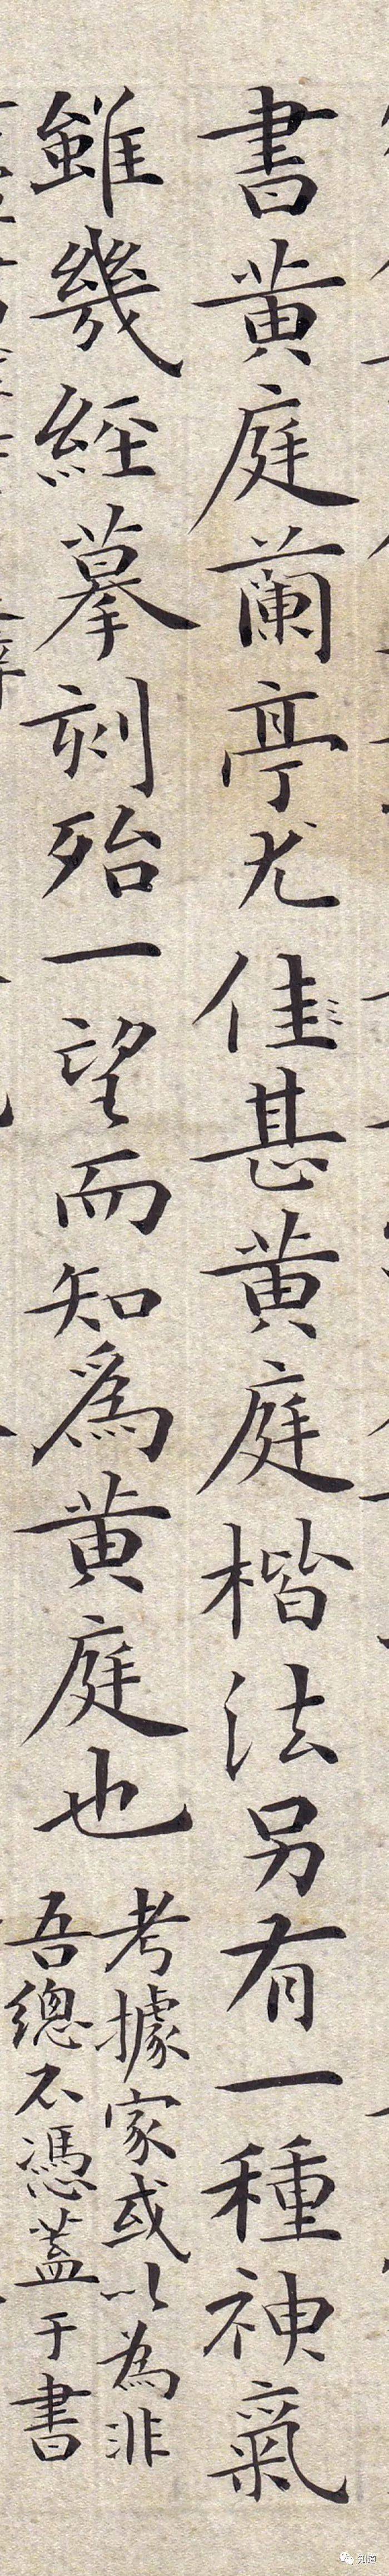 書黄庭蘭亭尤佳甚黄庭楷法另有一種神氣
雖幾經摹刻殆一望而知爲黄庭也
考據家或以為非
吾總不憑蓋于書
知道